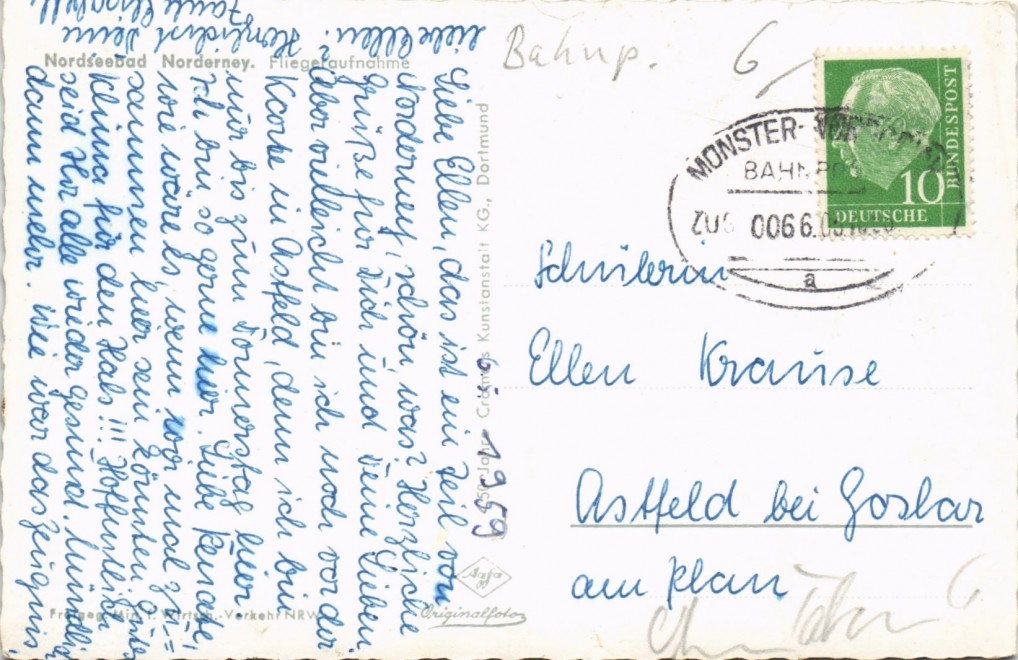 Nordseebad Norderney. Fliegeraufnahme
Liebe Ellen, das ist ein Teil von
Norderney, schön, was? Herzliche
Grüße für Dich und Deine Lieben.
Aber vielleicht bin ich noch vor der
Karte in Astfeld, denn ich bin
nur bis zum Donnerstag hier.
Ich bin so gerne hier. Liebe
wie wäre es, wenn wir mal zu=
sammen hier sein könnten. Gutes
Klima für den Hals!!! Hoffentlich
seid Ihr alle wieder gesund. Mündlich
dann mehr. Wie war das Zeugnis,
liebe Ellen? Herzlichst Deine
Tante Elisabeth
Freigeg. Min. f. Wirtsch. - Verkehr NRW
Jahre Cramers Kunstanstalt KG., Dortmund
1959
Agfa
Originalfoto
Bahnp. 6
DEUTSCHE
BUNDESPOST
10
MÜNSTER-
BAHNPOST
ZUG 0066
a
Schülerin
Ellen Krause
Astfeld bei Goslar
am Plan
6